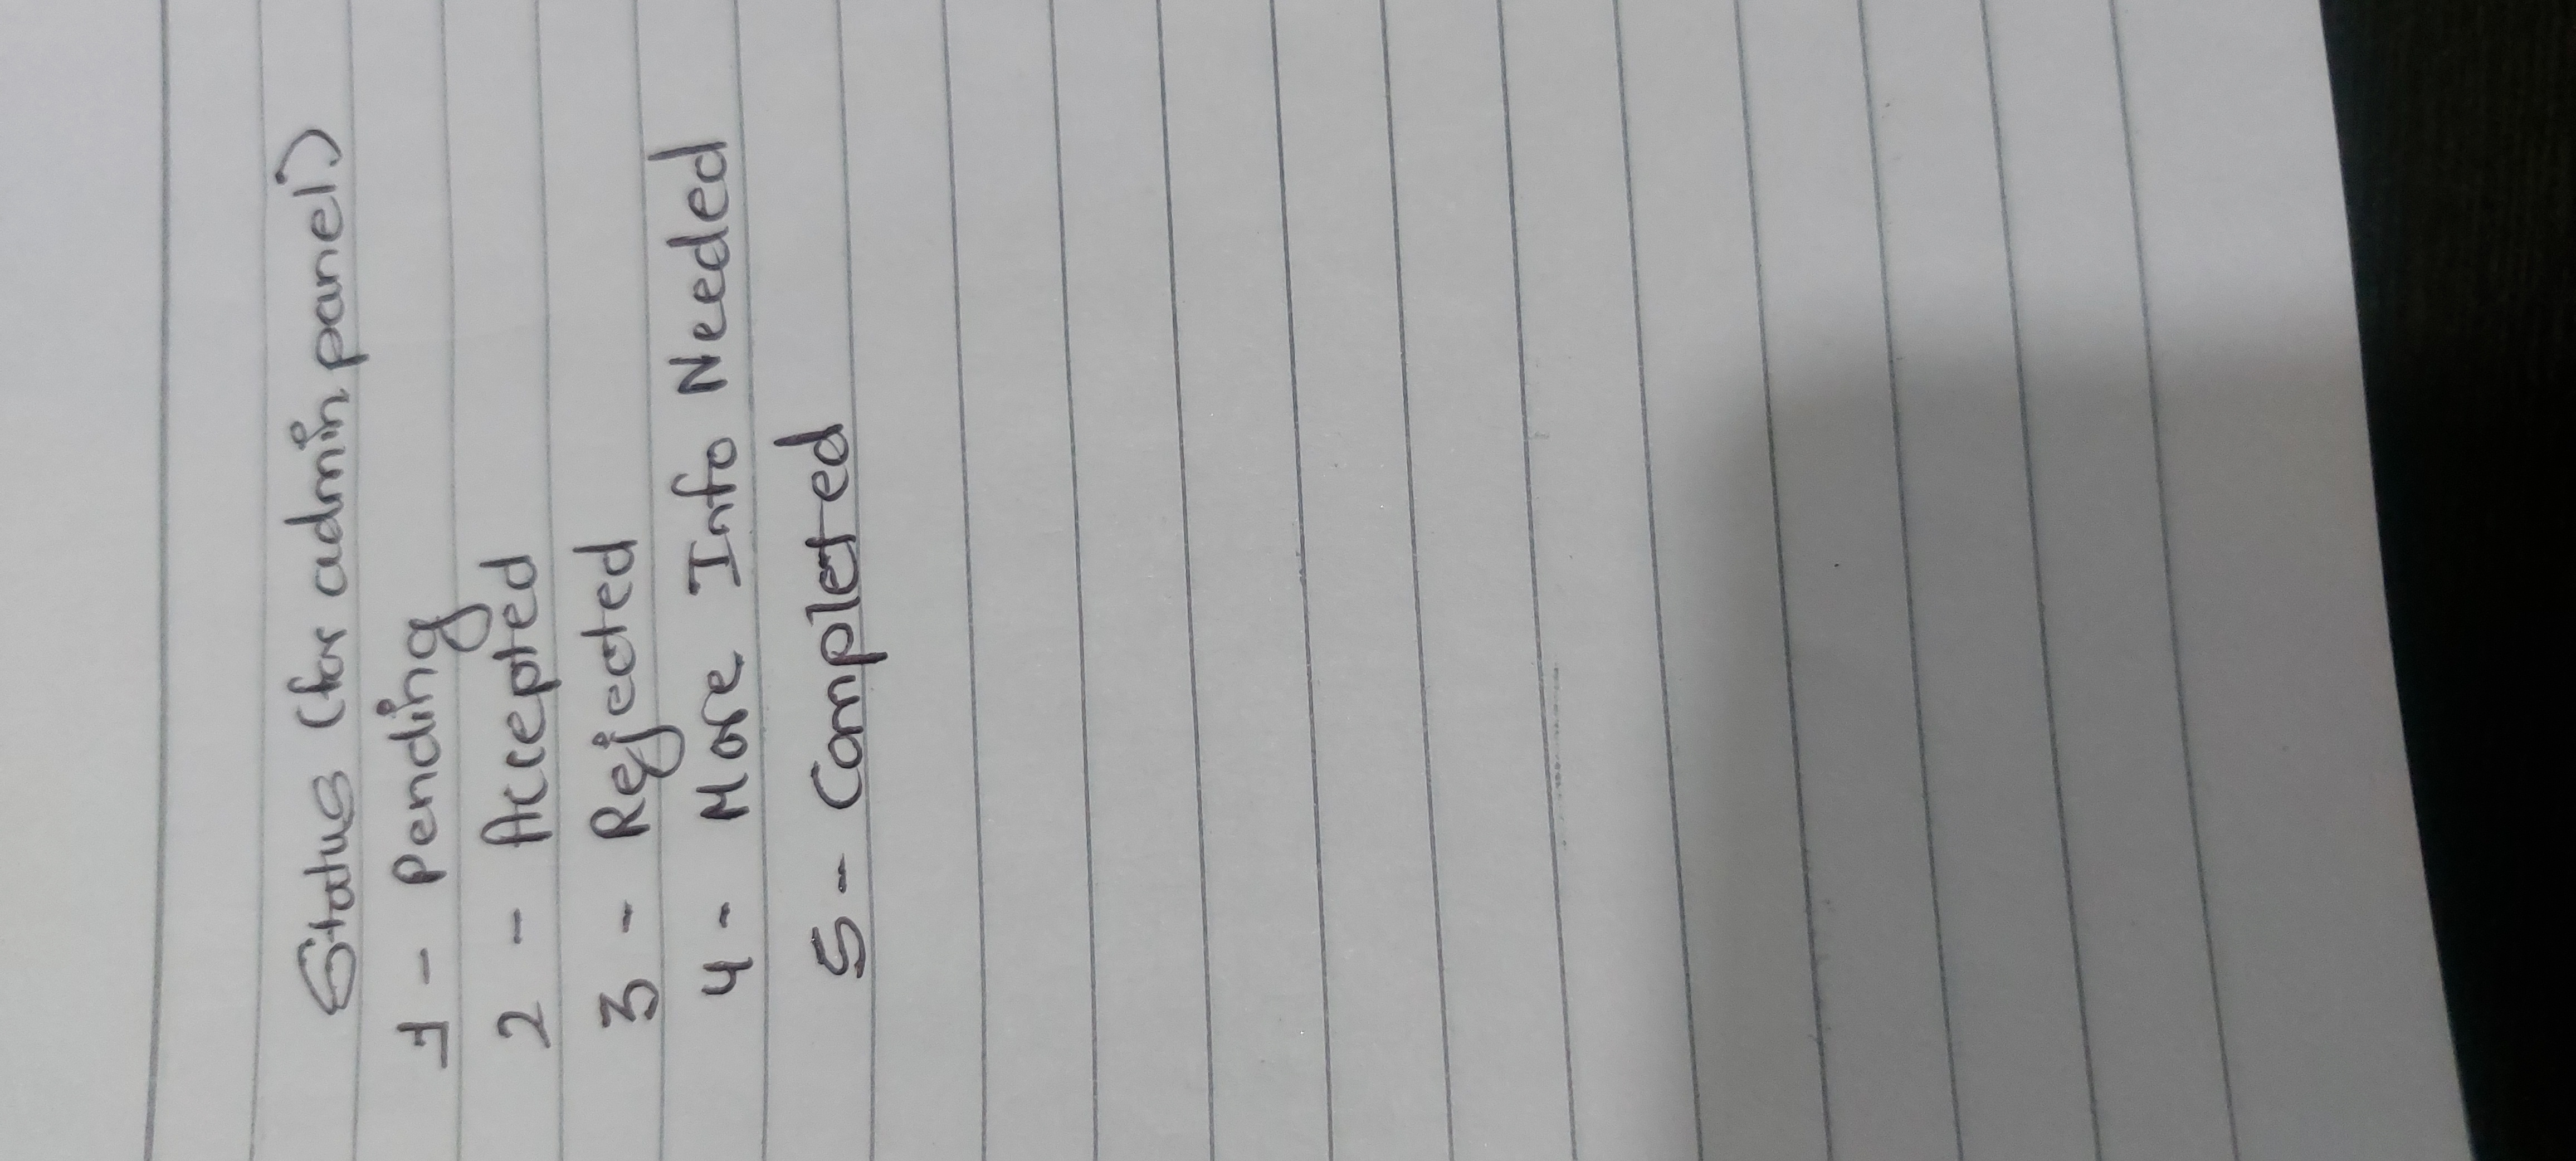 Status (for admin panel)
1 - Pending
2 - Accepted
3 - Rejected
4 - More Info Needed
5 - Completed